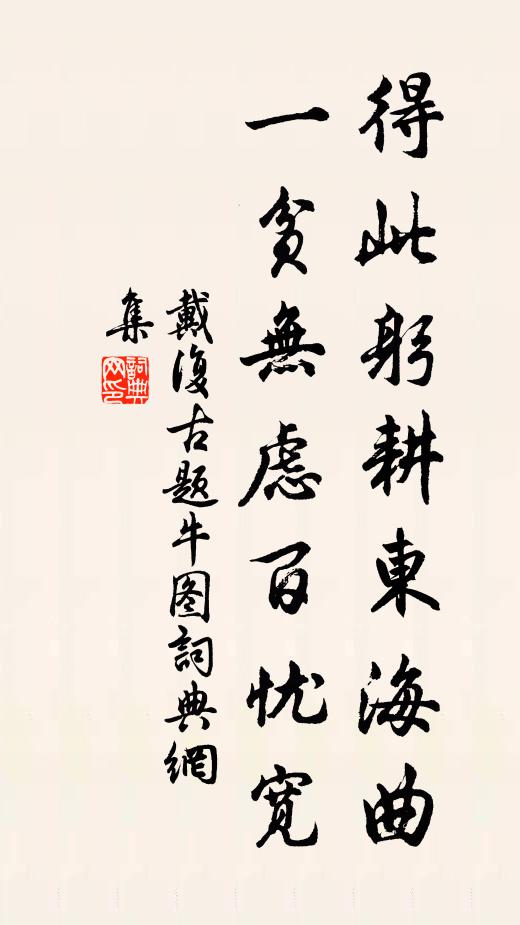 得此躬耕東海曲
一貧無慮百忧寬
戴復古题牛图詞典網
集
詞典网印